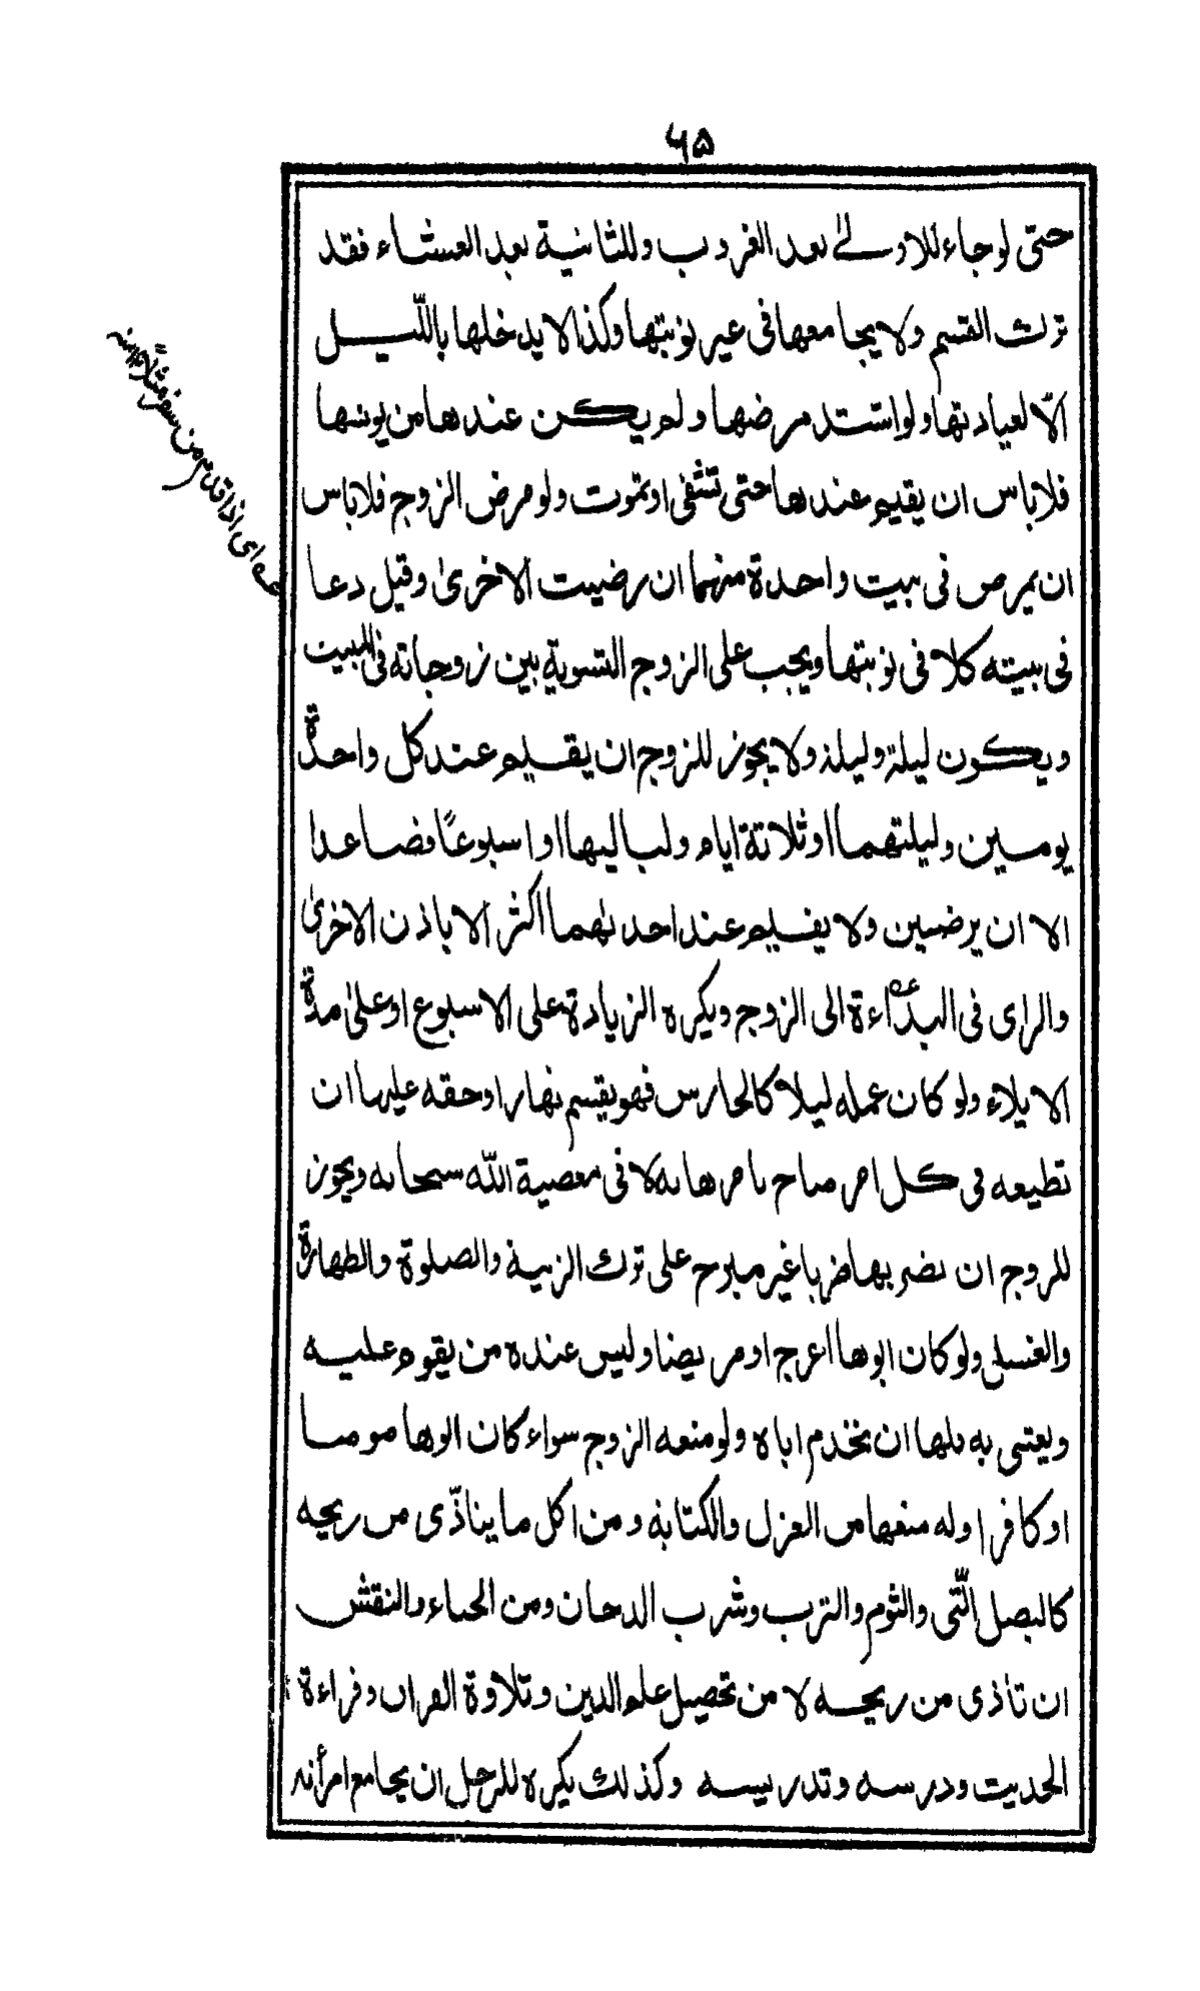 ۶۵
حتى لو جاء للاولىٰ بعد الغروب وللثانية بعد العشاء فقد
ترك القسم ولا يجامعها فى غير نوبتها وكذا لا يدخلها بالليل
الّا لعيادتها ولو اشتد مرضها ولم يكن عندها من يونسها
فلا باس ان يقيم عندها حتى تشفى او تموت ولو مرض الزوج فلا باس
ان يمرض فى بيت واحدة منهما ان رضيت الاخرىٰ وقيل دعا
فى بيته كلا فى نوبتها ويجب على الزوج التسوية بين زوجاته فى البيت
ويكون ليلة وليلة ولا يجوز للزوج ان يقيم عند كل واحدة
يومين وليلتهما او ثلاثة ايام ولياليها او اسبوعًا فصاعدا
الا ان يرضين ولا يقيم عند احدٰهما اكثر الا باذن الاخرىٰ
والراى فى البدٔاءة الى الزوج ويكره الزيادة على الاسبوع او علىٰ مدة
الايلاء ولو كان عمله ليلا كالحارس فهو يقسم نهارا وحقه عليها ان
تطيعه فى كل امر مباح يامرها به لا فى معصية الله سبحانه ويجوز
للزوج ان يضربها ضربا غير مبرح على ترك الزينة والصلوة والطهارة
والغسل ولو كان ابوها اعرج او مريضا وليس عنده من يقوم عليه
ويعتنى به فلها ان تخدم اباه ولو منعه الزوج سواء كان ابوها مومنا
او كافرا وله منعها من الغزل والكتابة ومن اكل ما يتاذّى من ريحه
كالبصل النّى والثوم والترب وشرب الدخان ومن الحناء والنقش
ان تاذى من ريحه لا من تحصيل علم الدين وتلاوة القران وقراءة
الحديث ودرسه وتدريسه وكذلك يكره للرجل ان يجامع امرأته
عه اى اذا قدم من سفر مثلاً